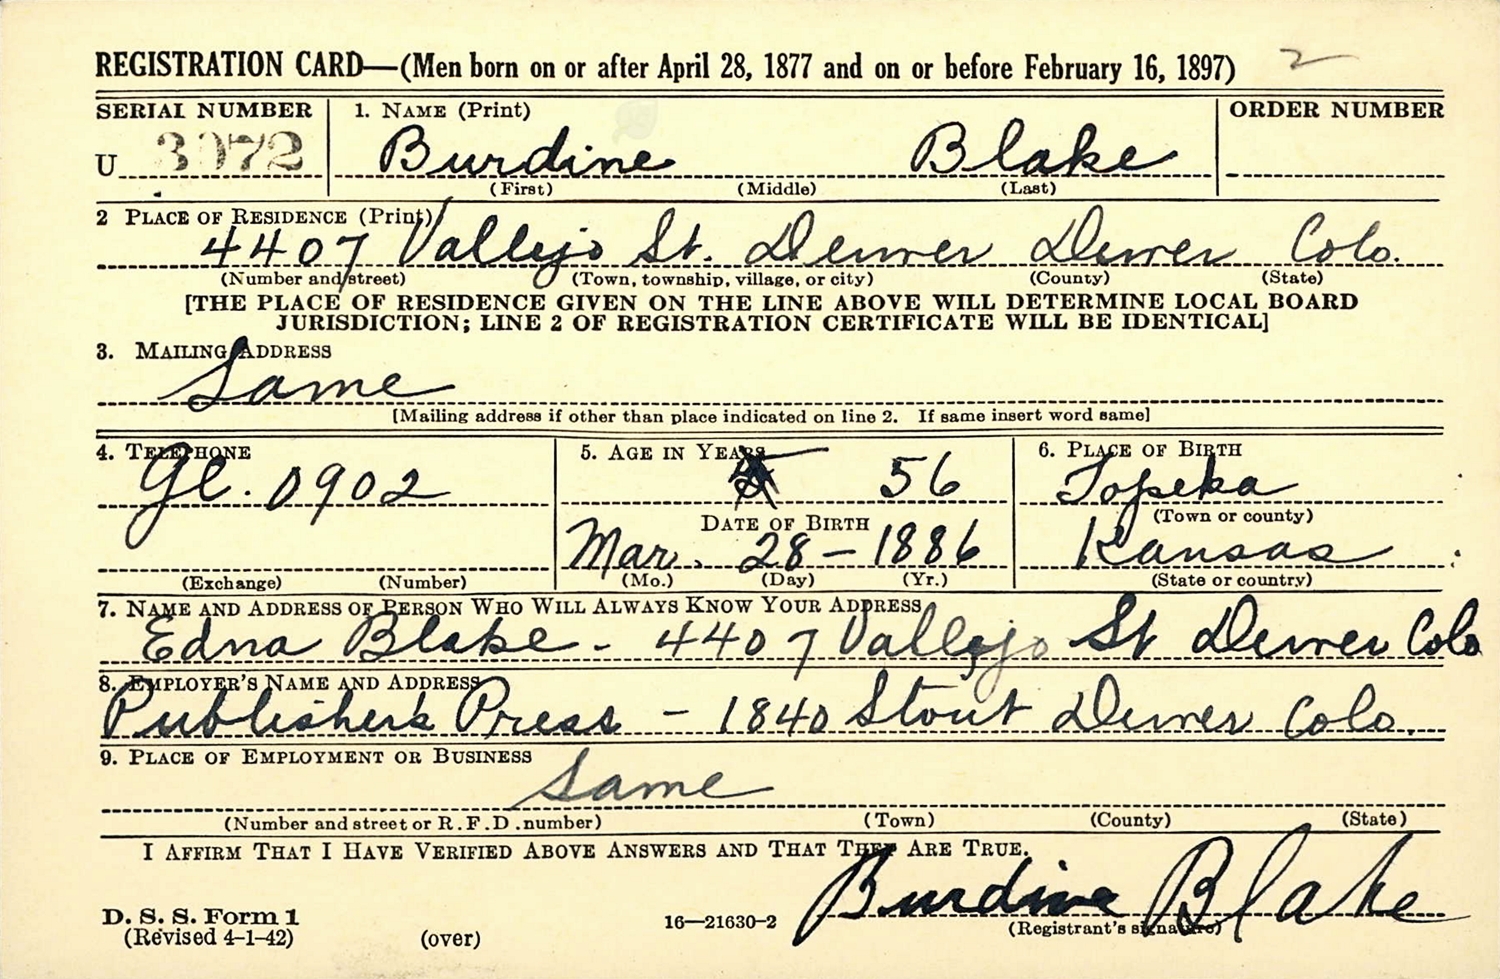 REGISTRATION CARD—(Men born on or after April 28, 1877 and on or before February 16, 1897) 2
SERIAL NUMBER 1. NAME (Print) ORDER NUMBER
U 3072 Burdine Blake
(First) (Middle) (Last)
2 PLACE OF RESIDENCE (Print)
4407 Vallejo St. Denver Denver Colo.
(Number and street) (Town, township, village, or city) (County) (State)
[THE PLACE OF RESIDENCE GIVEN ON THE LINE ABOVE WILL DETERMINE LOCAL BOARD
JURISDICTION; LINE 2 OF REGISTRATION CERTIFICATE WILL BE IDENTICAL]
3. MAILING ADDRESS
Same
[Mailing address if other than place indicated on line 2. If same insert word same]
4. TELEPHONE 5. AGE IN YEARS 6. PLACE OF BIRTH
Gl. 0902 56 Topeka
(Town or county)
DATE OF BIRTH
Mar. 28 – 1886 Kansas
(Exchange) (Number) (Mo.) (Day) (Yr.) (State or country)
7. NAME AND ADDRESS OF PERSON WHO WILL ALWAYS KNOW YOUR ADDRESS
Edna Blake - 4407 Vallejo St Denver Colo
8. EMPLOYER'S NAME AND ADDRESS
Publisher's Press - 1840 Stout Denver Colo.
9. PLACE OF EMPLOYMENT OR BUSINESS
Same
(Number and street or R. F. D. number) (Town) (County) (State)
I AFFIRM THAT I HAVE VERIFIED ABOVE ANSWERS AND THAT THEY ARE TRUE.
Burdine Blake
D. S. S. Form 1 16—21630-2 (Registrant's signature)
(Revised 4-1-42) (over)